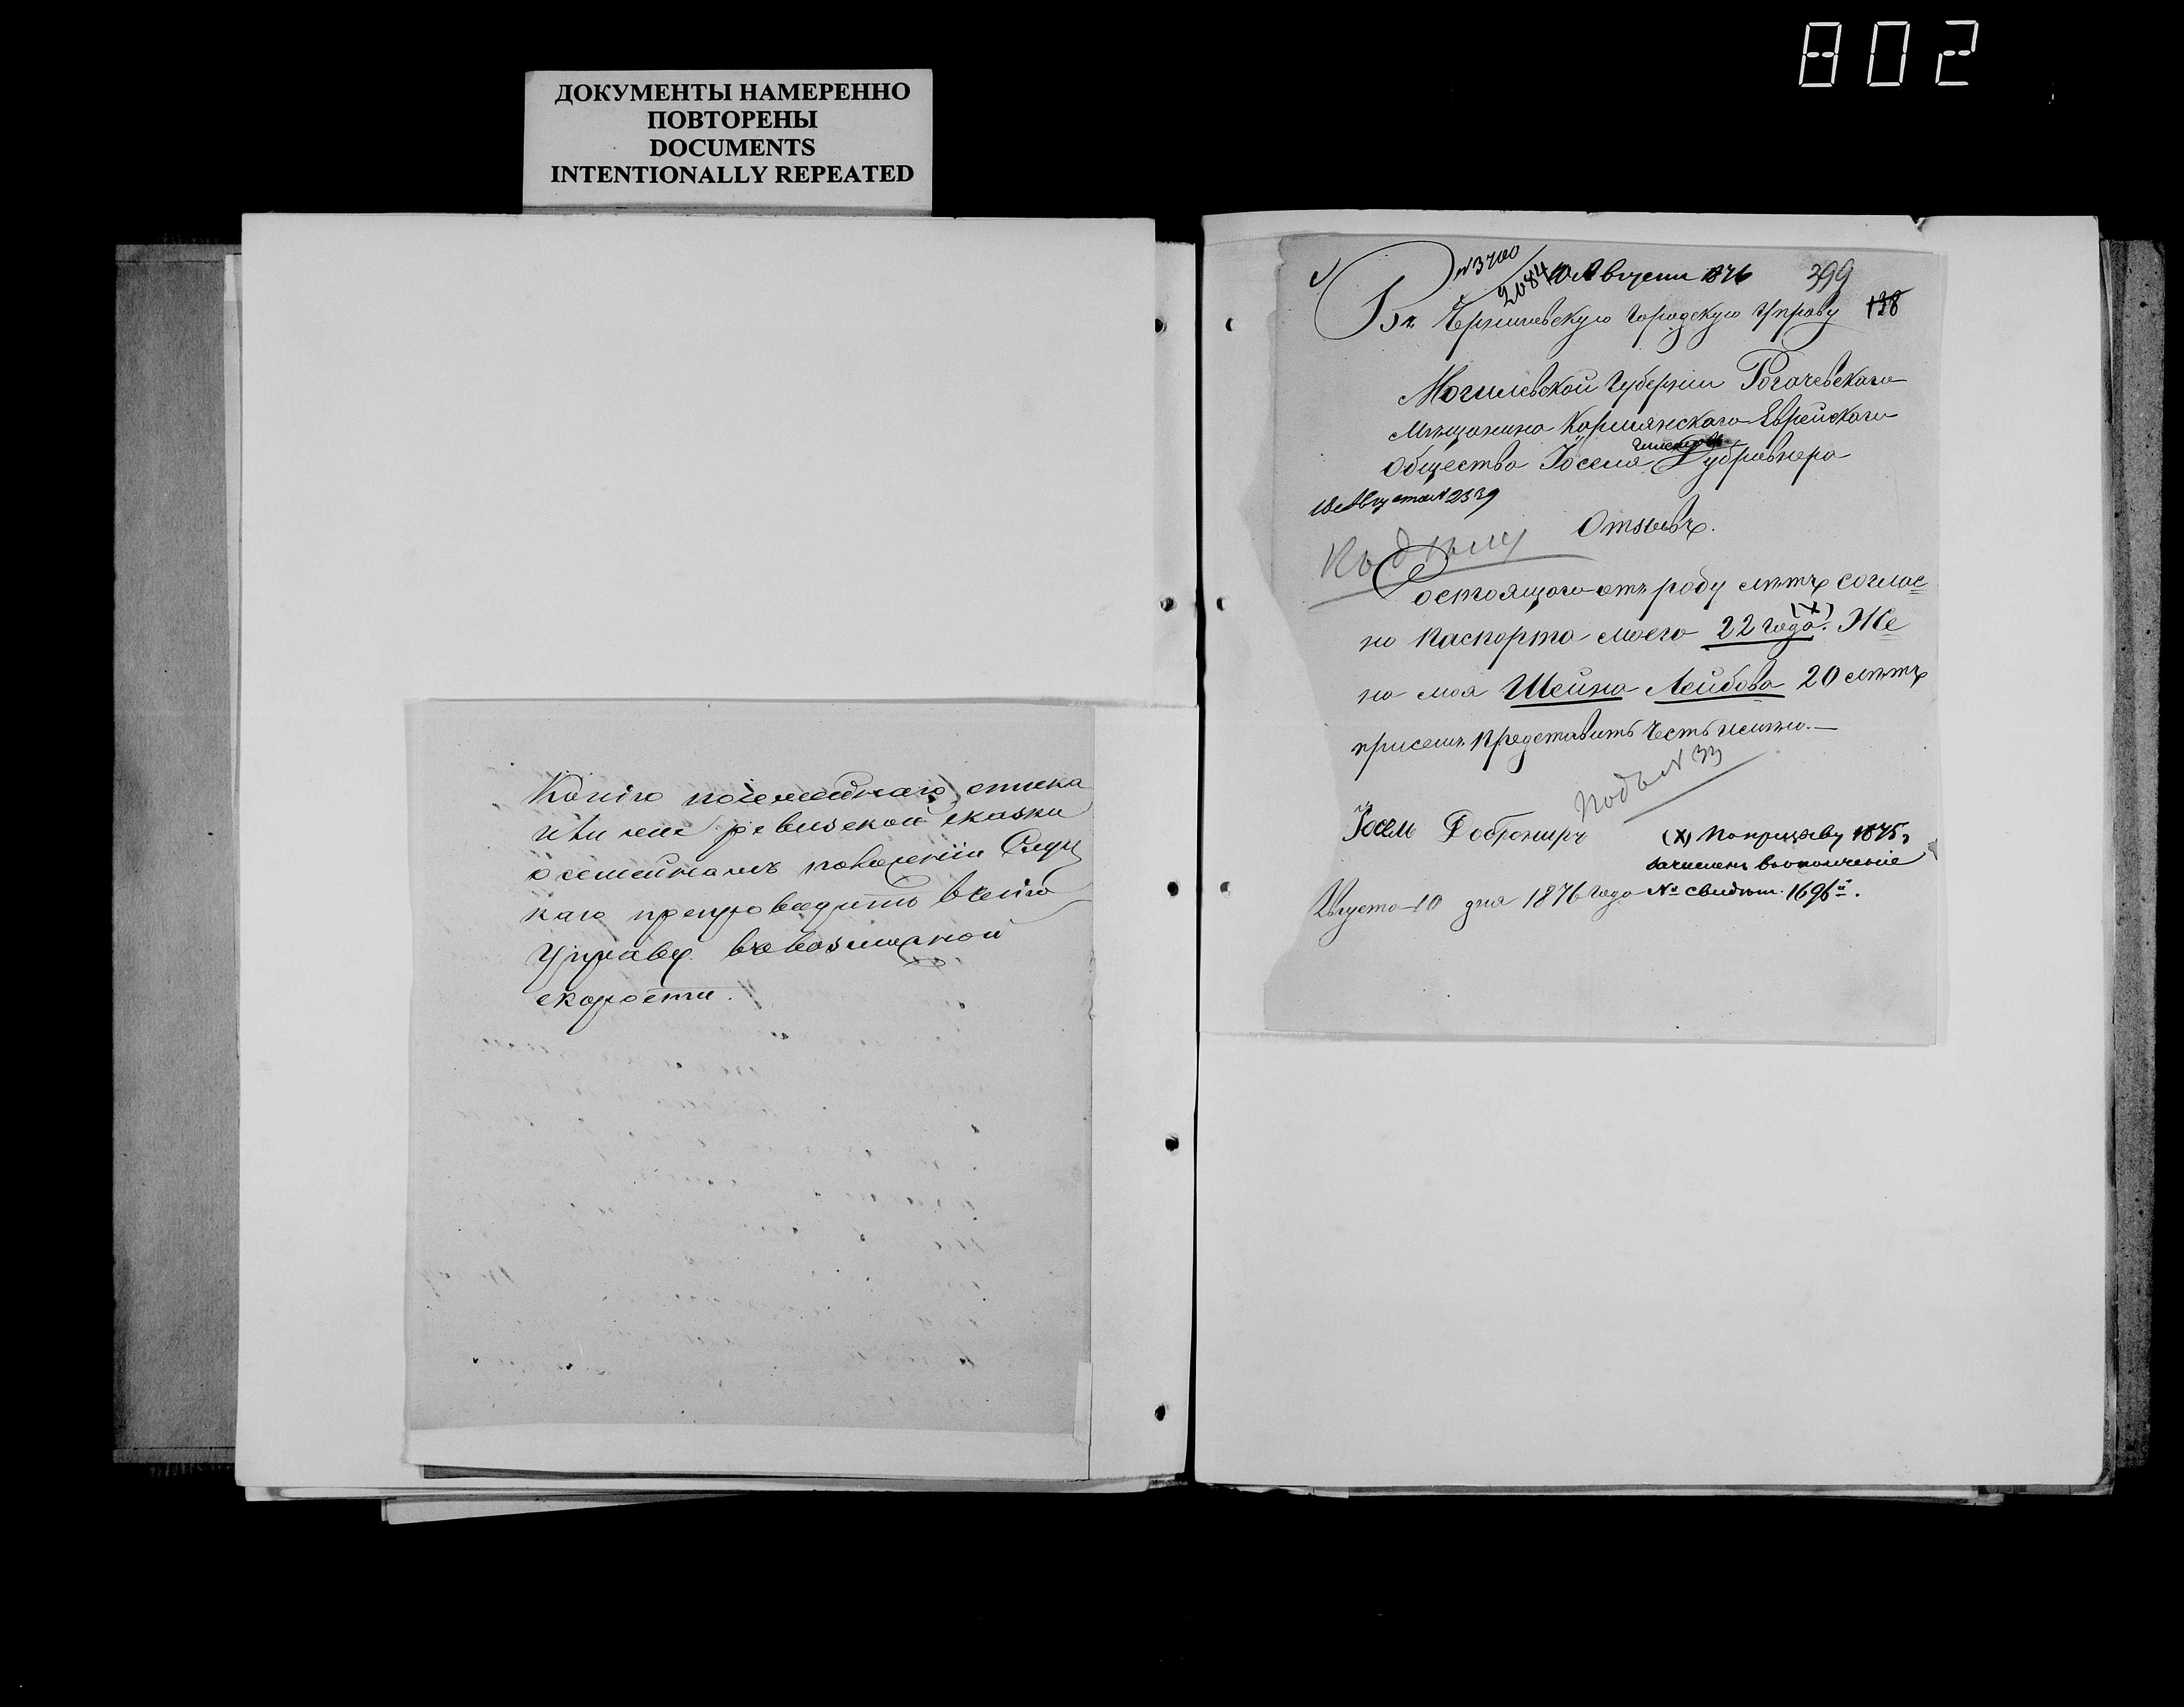 802
ДОКУМЕНТЫ НАМЕРЕННО
ПОВТОРЕНЫ
DOCUMENTS
INTENTIONALLY REPEATED
Копію посемейнаго списка
или ревизской сказки
о семейномъ положеніи Слуц
каго препроводить в сею
Управу въ возможной
скорости.
№ 3700
2084
10 Августа 1876
399
138
Въ Черниговскую Городскую Управу
Могилевской Губерніи Рогачевскаго
Мѣщанина Кормянскаго Еврейскаго
Общества Іоселя
10 Августа № 2339
Отзывъ.
Къ дѣлу
Состоящаго отъ роду лѣтъ соглас
но паспорта моего 22 года (х). Же
на моя Шейна Лейбова 20 лѣтъ
при семъ представить честь имѣю.—
Подъ № 33
Іосель Доброниръ
(х) По призыву 1875 г
зачисленъ въ ополченіе
№ свидѣт. 1696й.
Августа 10 дня 1876 года